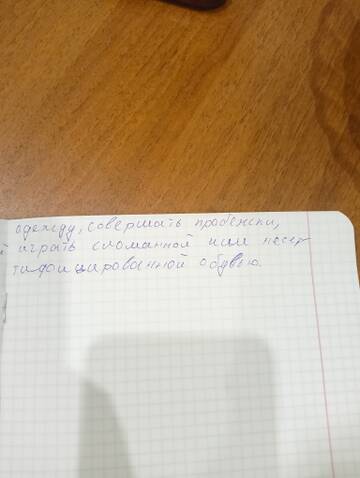 одежду, совершать пробежки,
й играть сломанной или несер
тифицированной обувью.